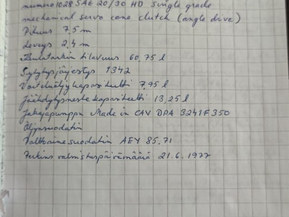 numero 1028 SAE 20/30 HD Single grade
mechanical servo cone clutch (angle drive)
Pituus 7,5 m
Leveys 2,4 m
tilavuus 60,75 l
Sytytysjärjestys 1342
Voiteluöljykapasiteetti 7,95 l
Jäähdytysneste kapasiteetti 13,25 l
Jakajapumppu Made in CAV DPA 3241F350
Öljynsuodatin
Polttoainesuodatin AEY 85,71
Perkins valmistuspäivämäärä 21.6.1977